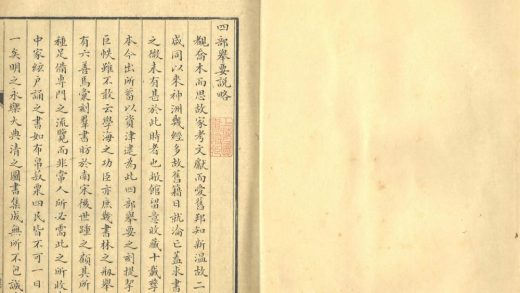 四部舉要說略
覩喬木而思故家考文獻而愛舊邦知新温故二
咸同以來神洲幾經多故舊籍日就淪亡蓋求書
之微未有甚於此時者也敝館留意收藏十載孳
本今出所蓄以資津逮爲此四部舉要之刻提挈
巨帙雖不敢云學海之功臣亦庶幾書林之
有六善焉彙刻羣書昉於南宋後世踵之顧其所
種足備專門之流覽而非常人所必需此之所收
中家絃户誦之書如布帛菽粟四民皆不可一日
一矣明之永樂大典清之圖書集成無所不包誠